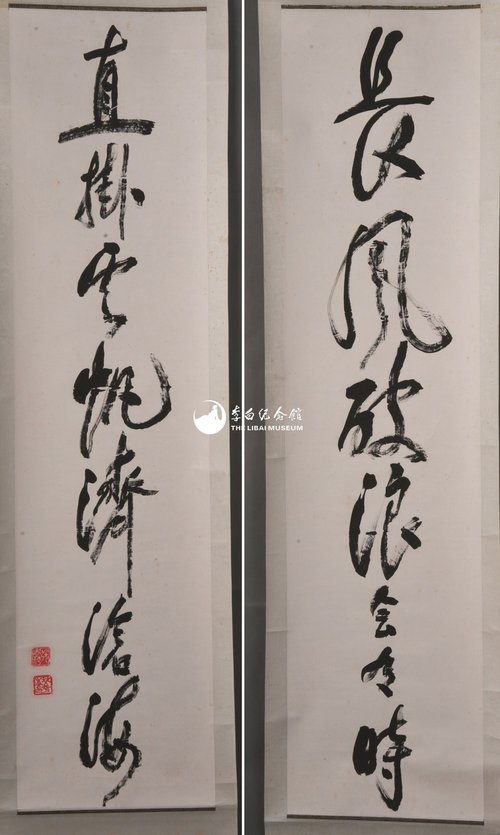 長风破浪会有時
直掛雲帆濟滄海
李白纪念馆
THE LIBAI MUSEUM